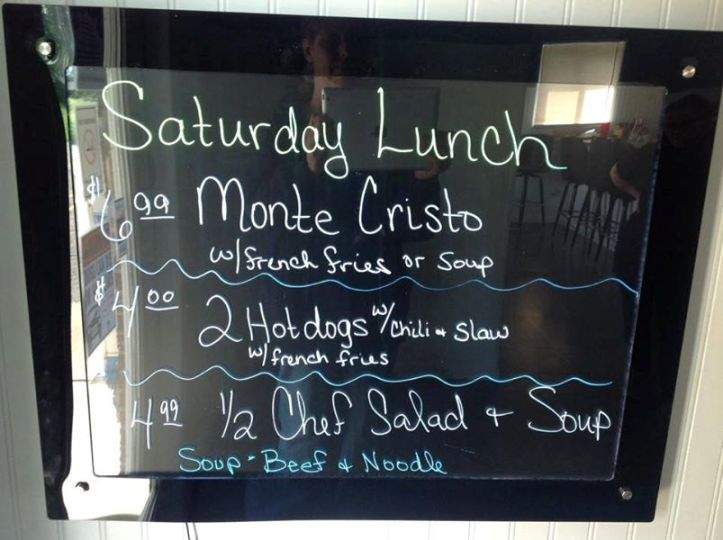 Saturday Lunch
$6.99 Monte Cristo
w/french fries or Soup
$4.00 2 Hotdogs w/chili & Slaw
w/french fries
4.99 1/2 Chef Salad + Soup
Soup - Beef & Noodle